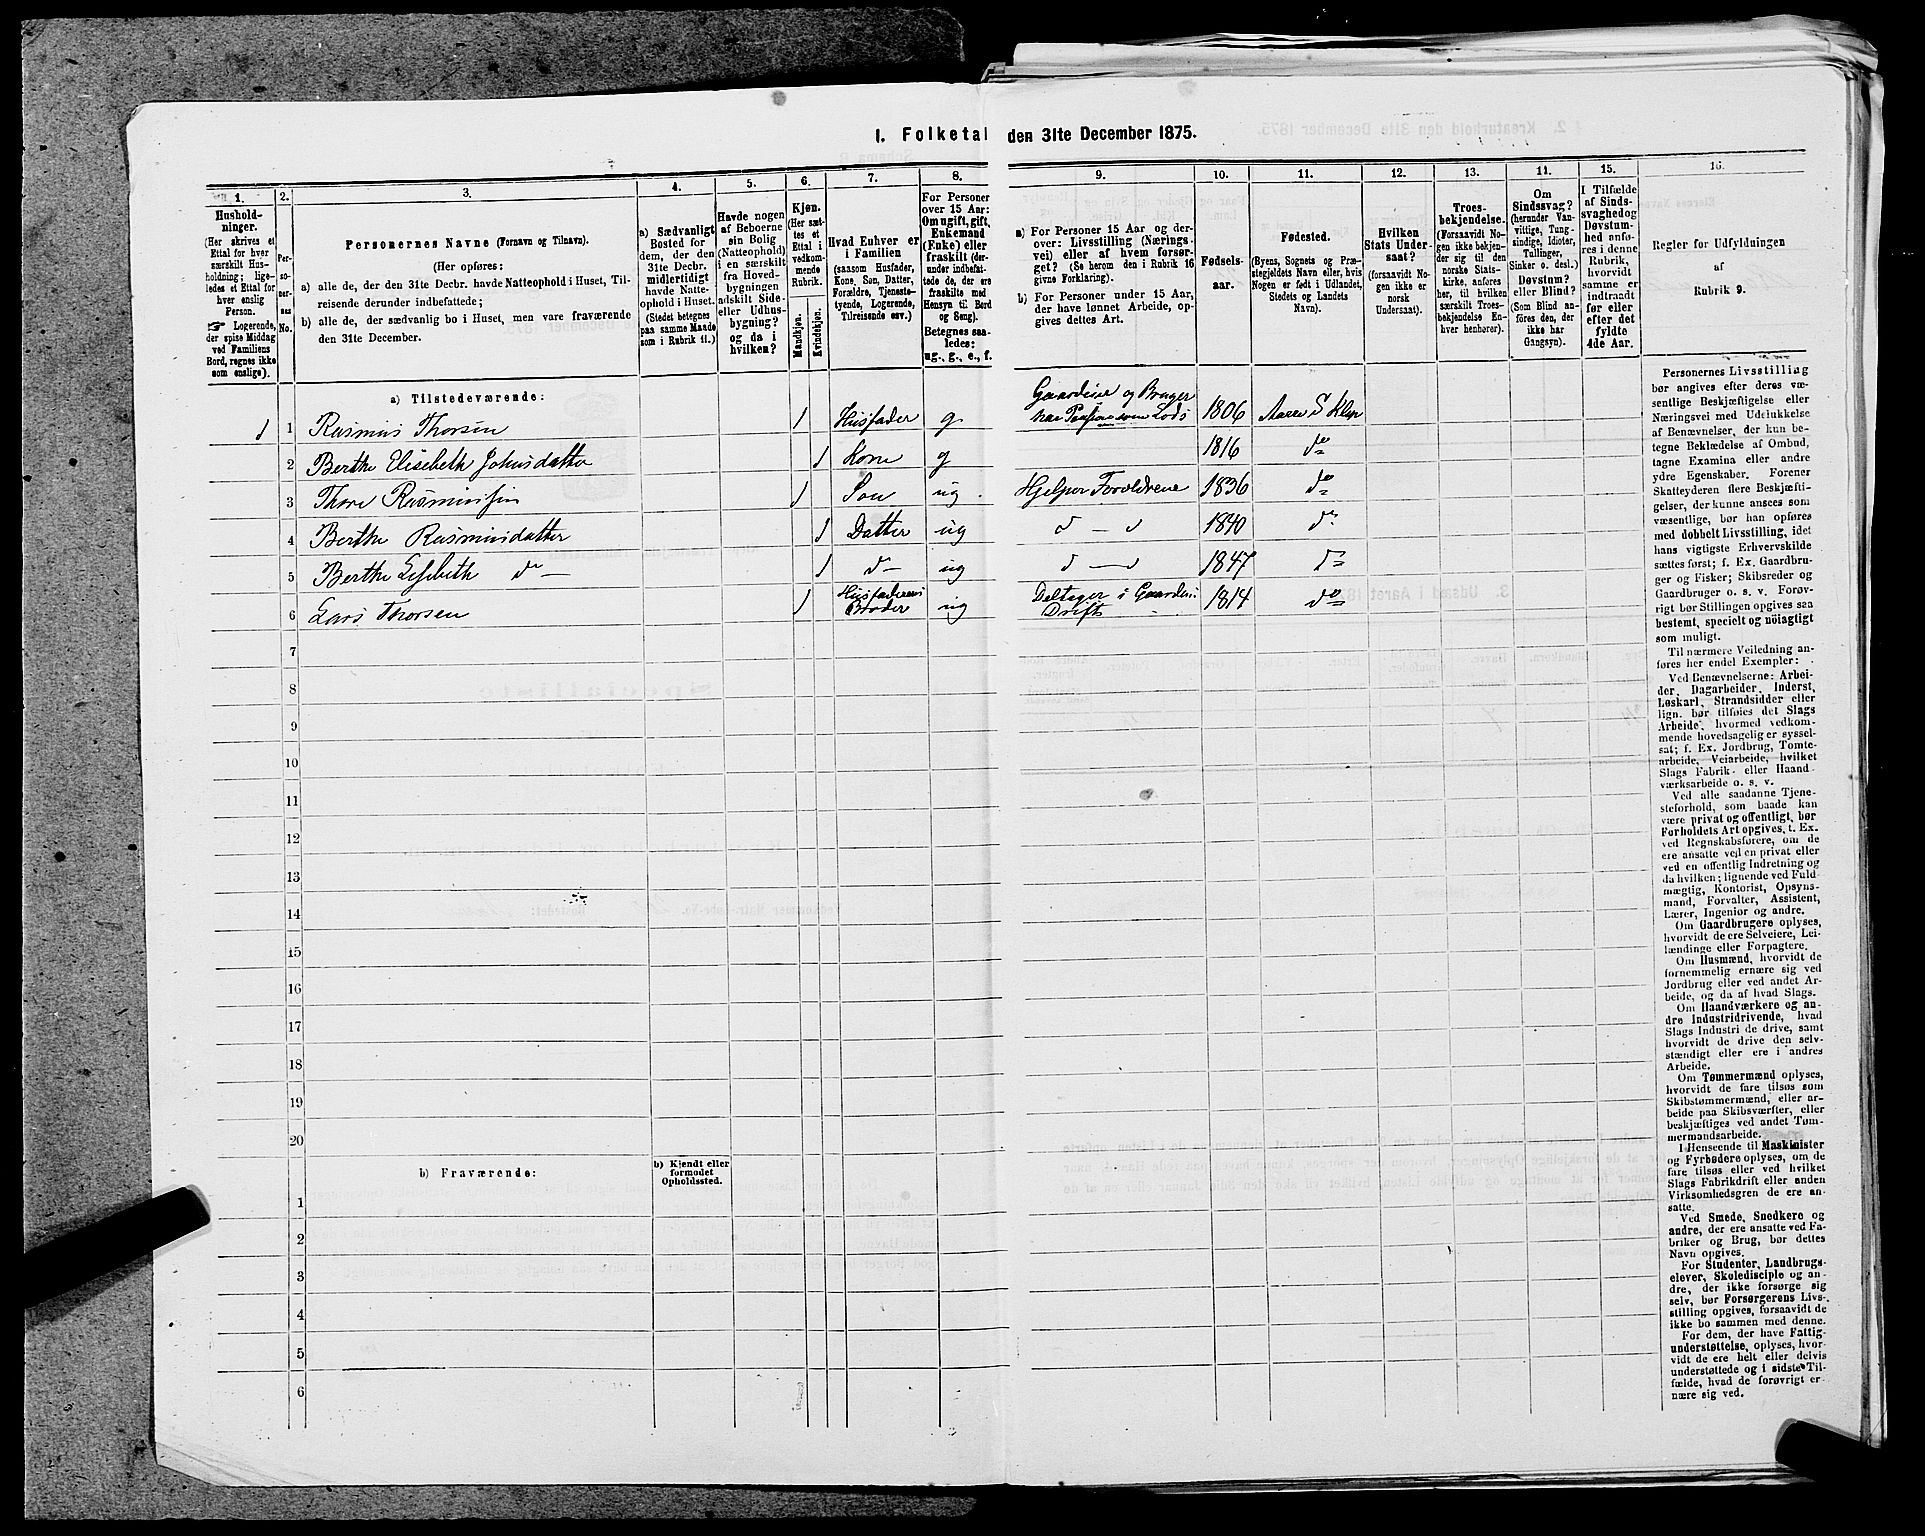 1. Folketal den 31te December 1875.
1. 2. 3. 4. 5. 6. 7. 8. 9. 10. 11. 12. 13. 14. 15. 16.
Hushold-
ninger.
(Her skrives et
Ettal for hver
særskilt Hus-
holdning; lige-
ledes et Ettal for
hver enslig
Person.
☞ Logerende,
der spise Middag
ved Familiens
Bord, regnes ikke
som enslige).
Per-
so-
ner-
nes
No.
Personernes Navne (Fornavn og Tilnavn).
(Her opføres:
a) alle de, der den 31te Decbr. havde Natteophold i Huset, Til-
reisende derunder indbefattede;
b) alle de, der sædvanlig bo i Huset, men vare fraværende
den 31te December.
a) Sædvanligt
Bosted for
dem, der den
31te Decbr.
midlertidigt
havde Natte-
ophold i Huset.
(Stedet betegnes
paa samme Maade
som i Rubrik 11.)
Havde nogen
af Beboerne
sin Bolig
(Natteophold)
i en særskilt
fra Hoved-
bygningen
adskilt Side-
eller Udhus-
bygning?
og da i
hvilken?
Kjøn.
(Her sæt-
tes et
Ettal i
vedkom-
mende
Rubrik.
Mandkjøn.
Kvindekjøn.
Hvad Enhver er
i Familien
(saasom Husfader,
Kone, Søn, Datter,
Forældre, Tjeneste-
tyende, Logerende,
Tilreisende osv.)
For Personer
over 15 Aar:
Om ugift, gift,
Enkemand
(Enke) eller
fraskilt (der-
under indbefat-
tede de, der ere
fraskilte med
Hensyn til Bord
og Seng).
Betegnes saa-
ledes:
ug., g., e., f.
a) For Personer 15 Aar og der-
over: Livsstilling (Nærings-
vei) eller af hvem forsør-
get? (Se herom den i Rubrik 16
givne Forklaring).
b) For Personer under 15 Aar,
der have lønnet Arbeide, op-
gives dettes Art.
Fødsels-
aar.
Fødested.
(Byens, Sognets og Præ-
stegjeldets Navn eller, hvis
Nogen er født i Udlandet,
Stedets og Landets
Navn).
Hvilken
Stats Under-
saat?
(forsaavidt No-
gen ikke er
norsk
Undersaat).
Troes-
bekjendelse.
(Forsaavidt No-
gen ikke bekjen-
der sig til den
norske Stats-
kirke, anføres
her, til hvilken
særskilt Troes-
bekjendelse En-
hver henhører).
Om
Sindssvag?
(herunder Van-
vittige, Tung-
sindige, Idioter,
Tullinger,
Sinker o. desl.)
Døvstum?
eller Blind?
(Som Blind an-
føres den, der
ikke har
Gangsyn).
I Tilfælde
af Sinds-
svaghed og
Døvstum-
hed anfø-
res i denne
Rubrik,
hvorvidt
samme er
indtraadt
før eller
efter det
fyldte
4de Aar.
Regler for Udfyldningen
af
Rubrik 9.
a) Tilstedeværende:
Gaardeier og Bruger
1 1 Rasmus Thorsen 1 Husfader g som Lods 1806
2 Berthe Elisebeth Johnsdatter 1 Kone g 1816 do
3 Thore Rasmussen 1 Søn ug Hjelper Forældrene 1836 do
4 Berthe Rasmusdatter 1 Datter ug d — d 1840 do
5 Berthe Lisebeth do 1 d — ug d — d 1847 do
6 Lars Thorsen 1 Husfaderens Broder ug Deltager i Gaardens Drift 1814 do
7
8
9
10
11
12
13
14
15
16
17
18
19
20
b) Fraværende:
b) Kjendt eller
formodet
Opholdssted.
1
2
3
4
5
6
Personernes Livsstilling
bør angives efter deres væ-
sentlige Beskjæftigelse eller
Næringsvei med Udelukkelse
af Benævnelser, der kun be-
tegne Beklædelse af Ombud,
tagne Examina eller andre
ydre Egenskaber. Forener
Skatteyderen flere Beskjæfti-
gelser, der kunne ansees som
væsentlige, bør han opføres
med dobbelt Livsstilling, idet
hans vigtigste Erhvervskilde
sættes først; f. Ex. Gaardbru-
ger og Fisker; Skibsreder og
Gaardbruger o. s. v. Forøv-
rigt bør Stillingen opgives saa
bestemt, specielt og nöiagtigt
som muligt.
Til nærmere Veiledning an-
føres her endel Exempler:
Ved Benævnelserne: Arbei-
der, Dagarbeider, Inderst,
Løskarl, Strandsidder eller
lign. bør tilføies det Slags
Arbeide, hvormed vedkom-
mende hovedsagelig er syssel-
sat; f. Ex. Jordbrug, Tomte-
arbeide, Veiarbeide, hvilket
Slags Fabrik- eller Haand-
værksarbeide o. s. v.
Ved alle saadanne Tjene-
steforhold, som baade kan
være privat og offentligt, bør
Forholdets Art opgives, t. Ex.
ved Regnskabsførere, om de
ere ansatte ved en privat eller
ved en offentlig Indretning og
da hvilken; lignende ved Fuld-
mægtig, Kontorist, Opsyns-
mand, Forvalter, Assistent,
Lærer, Ingeniør og andre.
Om Gaardbrugere oplyses,
hvorvidt de ere Selveiere, Lei-
lændinge eller Forpagtere.
Om Husmænd, hvorvidt de
fornemmelig ernære sig ved
Jordbrug eller ved andet Ar-
beide, og da af hvad Slags.
Om Haandværkere og an-
dre Industridrivende, hvad
Slags Industri de drive, samt
hvorvidt de drive den selv-
stændigt eller ere i andres
Arbeide.
Om Tømmermænd oplyses,
hvorvidt de fare tilsøs som
Skibstømmermænd, eller ar-
beide paa Skibsværfter, eller
beskjæftiges ved andet Tøm-
mermandsarbeide.
I Henseende til Maskinister
og Fyrbødere oplyses, om de
fare tilsøs eller ved hvilket
Slags Fabrikdrift eller anden
Virksomhedsgren de ere an-
satte.
Ved Smede, Snedkere og
andre, der ere ansatte ved Fa-
briker og Brug, bør dettes
Navn opgives.
For Studenter, Landbrugs-
elever, Skoledisciple og an-
dre, der ikke forsørge sig
selv, bør Forsørgerens Livs-
stilling opgives, forsaavidt de
ikke bo sammen med denne.
For dem, der have Fattig-
understøttelse, oplyses, hvor-
vidt de ere helt eller delvis
understøttede og i sidste Til-
fælde, hvad de forøvrigt er-
nære sig ved.